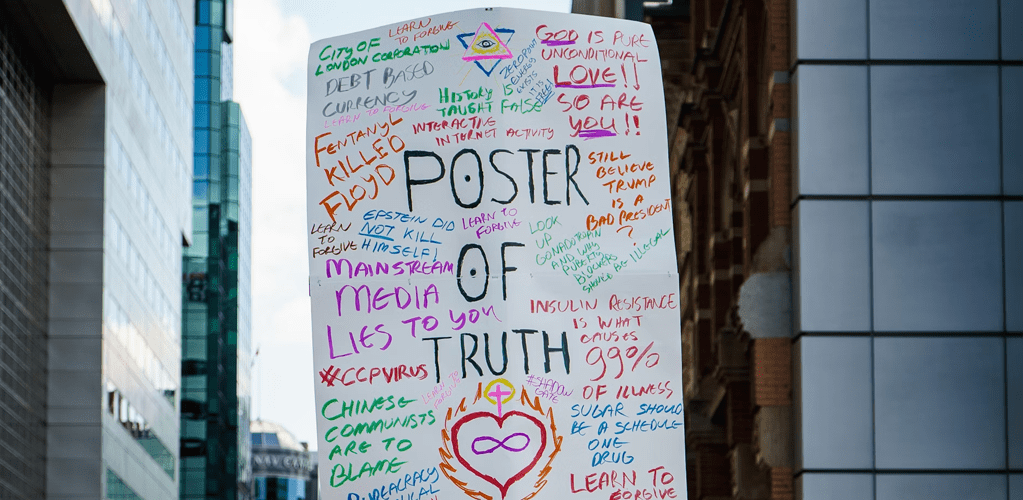 LEARN
TO FORGIVE
CITY OF
LONDON CORPORATION
DEBT BASED
CURRENCY
LEARN TO FORGIVE
FENTANYL
KILLED
FLOYD
LEARN
TO
FORGIVE
EPSTEIN DID
NOT KILL
HIMSELF!
MAINSTREAM
MEDIA
LIES TO YOU
#CCPVIRUS
LEARN TO
FORGIVE
CHINESE
COMMUNISTS
ARE TO
BLAME
HISTORY IS
TAUGHT FALSE
INTERACTIVE
INTERNET ACTIVITY
ZERO POINT
ENERGY
EXISTS
IT IS
FREE!
POSTER
OF
TRUTH
LEARN TO
FORGIVE
LOOK
UP
AND WHY
PUBERTY
BLOCKERS
SHOULD BE ILLEGAL
#SHADOW
GATE
GOD IS PURE
UNCONDITIONAL
LOVE!!
SO ARE
YOU!!
STILL
BELIEVE
TRUMP
IS A
BAD PRESIDENT
?
INSULIN RESISTANCE
IS WHAT
CAUSES
99%
OF ILLNESS
SUGAR SHOULD
BE A SCHEDULE
ONE
DRUG
LEARN TO
FORGIVE